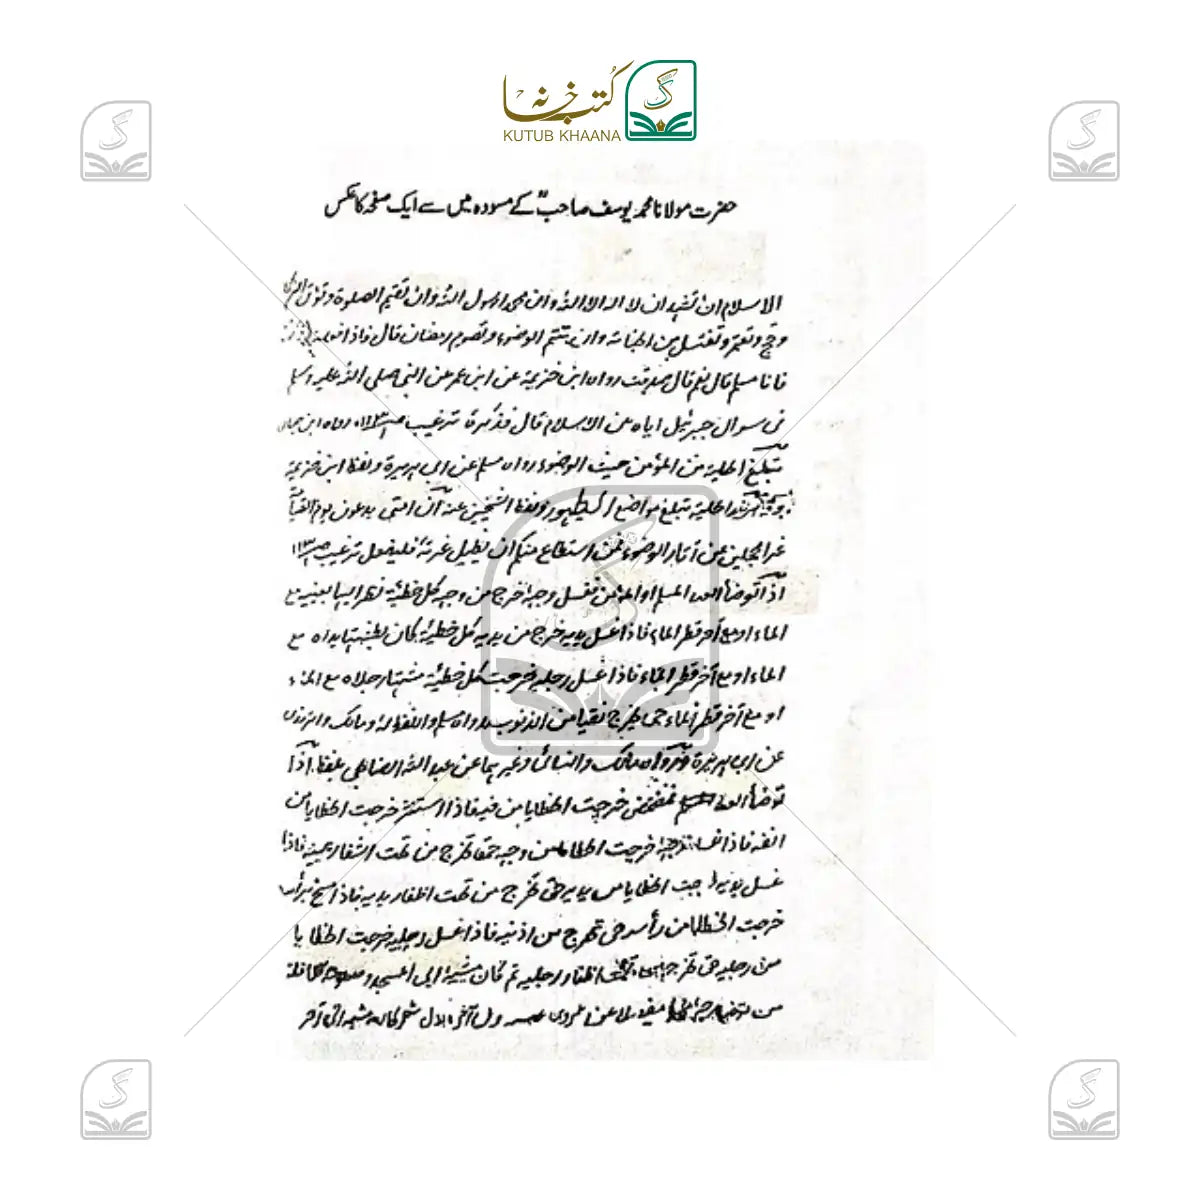 کتب خانہ
KUTUB KHAANA
حضرت مولانا محمد یوسف صاحبؒ کے مسودہ میں سے ایک صفحہ کا عکس
الاسلام ان تشهد ان لا اله الا الله وان محمد رسول الله وان تقیم الصلوة وتؤتی
وتحج وتعتمر وتغتسل من الجنابة وان تتم الوضوء وتصوم رمضان قال فاذا فعلت
فانا مسلم قال نعم قال صدقت رواه ابن خزیمة عن ابن عمر عن النبی صلی الله علیه وسلم
فی سوال جبرئیل ایاه عن الاسلام قال فذکره ترغیب رواه ابن حبان
تبلغ الحلیة من المؤمن حیث الوضوء رواه مسلم عن ابی هریرة ولفظ ابن خزیمة
الحلیة تبلغ مواضع الطهور ولفظ الشیخین عنه ان امتی یدعون یوم القیامة
غرا محجلین من آثار الوضوء فمن استطاع منکم ان یطیل غرته فلیفعل ترغیب
اذا توضأ العبد المسلم او المؤمن فغسل وجهه خرج من وجهه کل خطیئة نظر الیها بعینیه مع
الماء او مع آخر قطر الماء فاذا غسل یدیه خرج من یدیه کل خطیئة کان بطشتها یداه مع
الماء او مع آخر قطر الماء فاذا غسل رجلیه خرجت کل خطیئة مشتها رجلاه مع الماء
او مع آخر قطر الماء حتی یخرج نقیا من الذنوب رواه مسلم واللفظ له ومالک والترمذی
عن ابی هریرة ورواه مالک والنسائی وغیرهما عن عبد الله الصنابحی بلفظ اذا
توضأ العبد فمضمض خرجت الخطایا من فیه فاذا استنثر خرجت الخطایا من
انفه فاذا غسل وجهه خرجت الخطایا من وجهه حتی تخرج من تحت اشفار عینیه فاذا
غسل یدیه خرجت الخطایا من یدیه حتی تخرج من تحت اظفار یدیه فاذا مسح برأسه
خرجت الخطایا من رأسه حتی تخرج من اذنیه فاذا غسل رجلیه خرجت الخطایا
من رجلیه حتی تخرج من تحت اظفار رجلیه ثم کان مشیه الی المسجد وصلوته نافلة
من